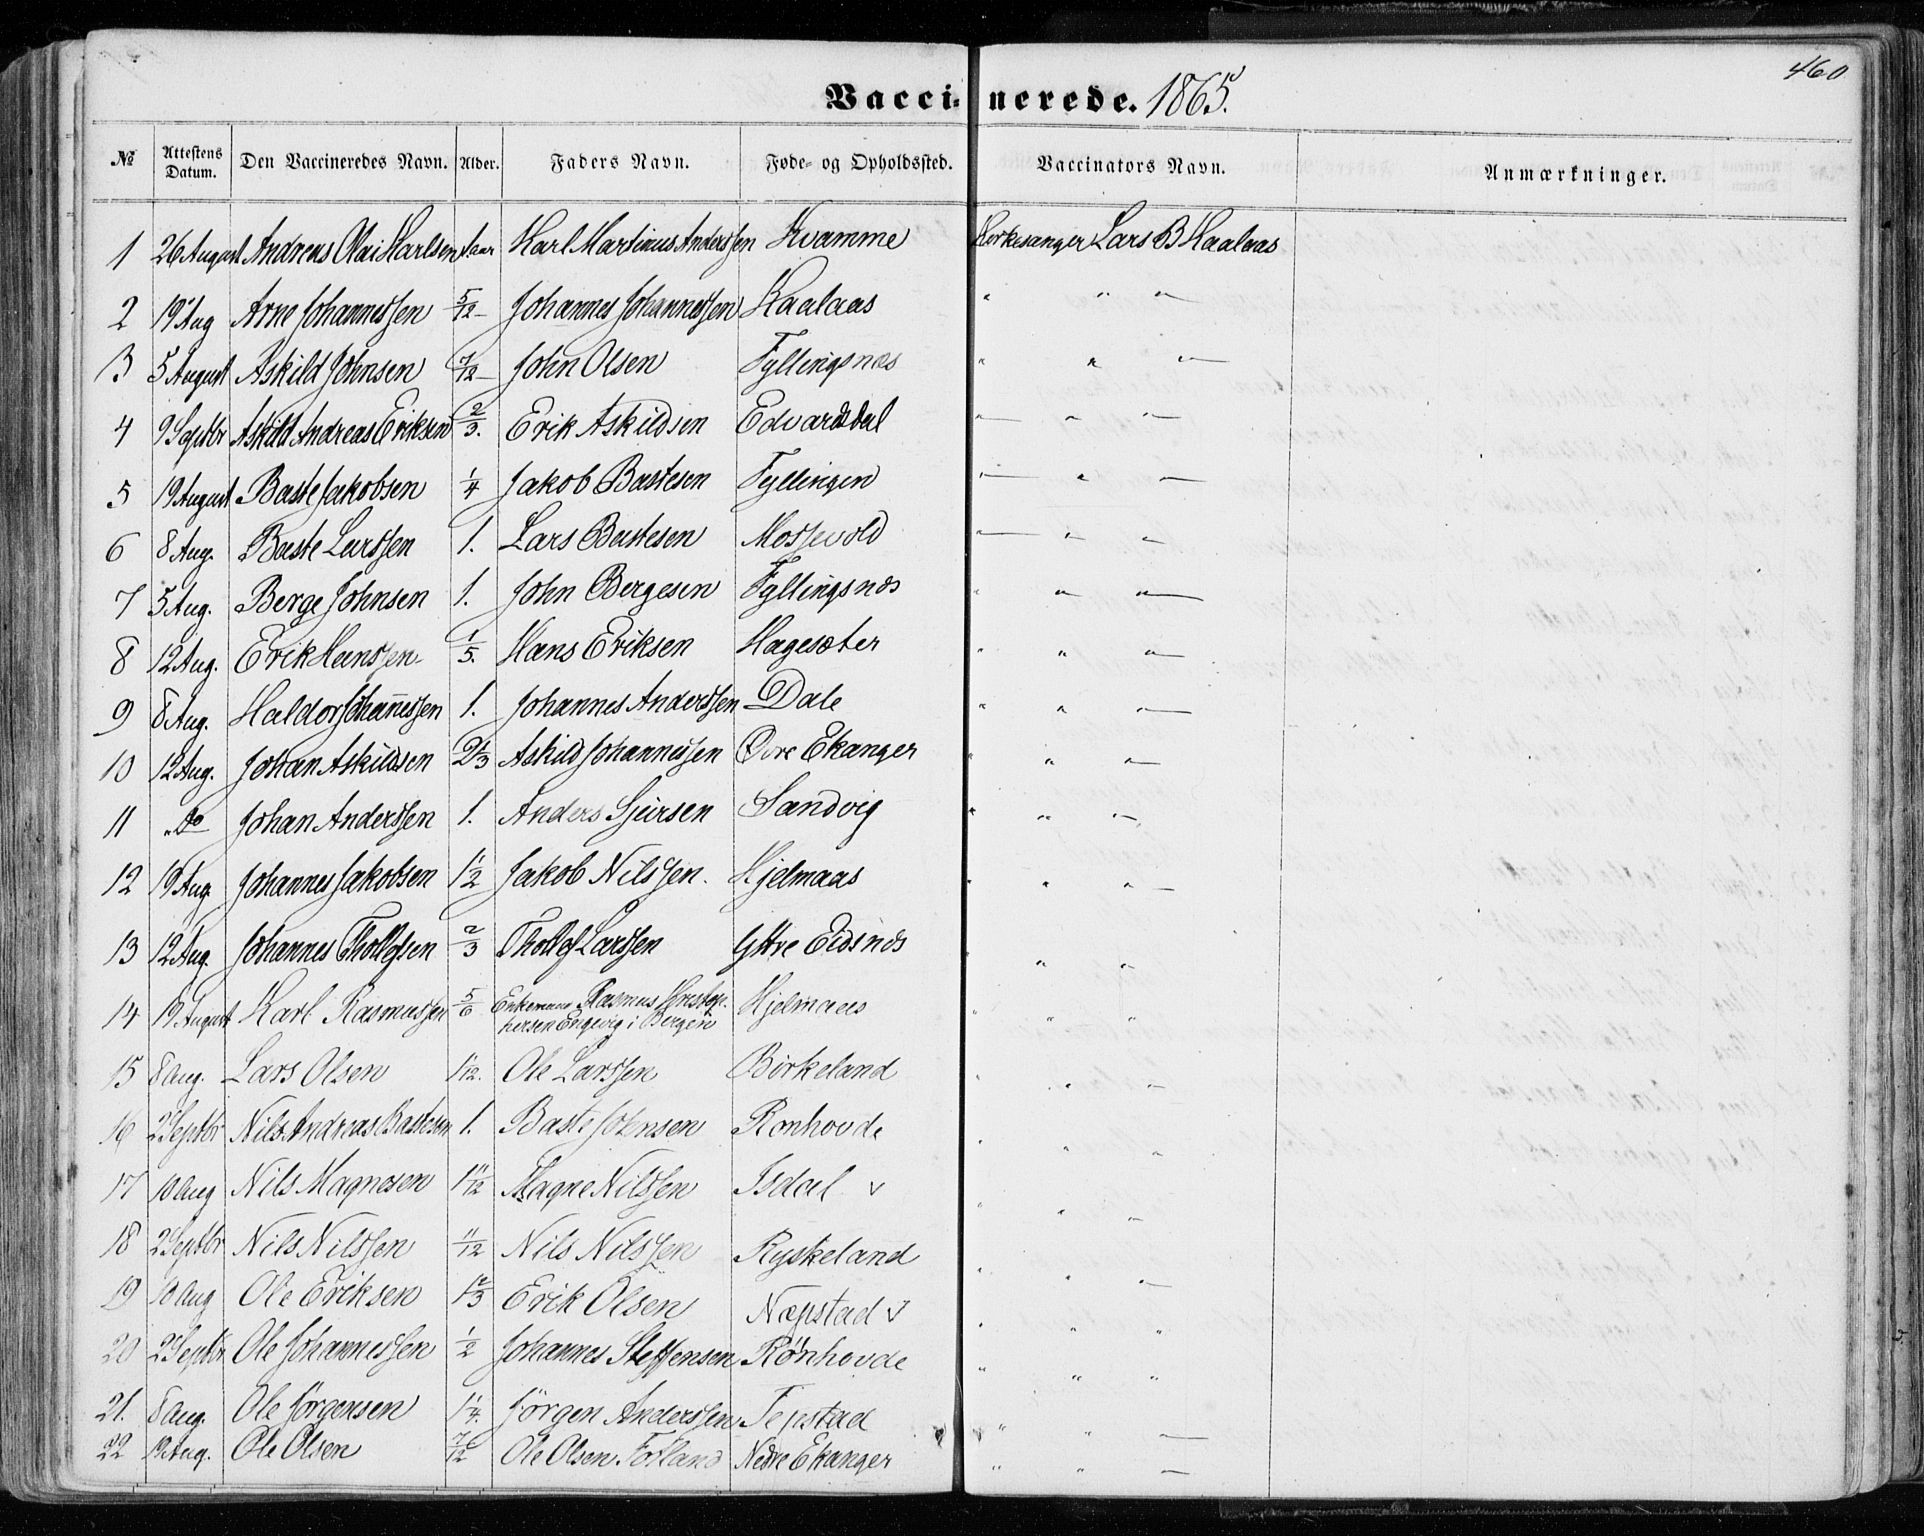 460
Vaccinerede. 1865.
№ Attestens Datum. Den Vaccineredes Navn. Alder. Faders Navn. Føde- og Opholdssted. Vaccinators Navn. Anmærkninger.
1 26 August Andreas Olai Karlsen 1 aar Karl Martinus Anderssen Kvamme Kirkesanger Lars B Haalaas
2 19 Aug Arne Johannessen 5/12 Johannes Johannessen Haalaas " " —
3 5 August Askild Johnsen 7/12 John Olsen Fyllingsnæs " " —
4 9 Septbr Askild Andreas Eriksen 2/3. Erik Askildsen Edvardsdal — " —
5 19 August Baste Jakobsen 1/4 Jakob Bastesen Fyllingen — " —
6 8 Aug. Baste Larssen 1. Lars Bastesen Mossevold — " —
7 5 Aug. Berge Johnsen 1. John Bergesen Fyllingsnæs " " —
8 12 Aug. Erik Hanssen 1/5. Hans Eriksen Hagesæter " " —
9 8 Aug. Haldor Johannessen 1. Johannes Anderssen Dale " " —
10 12 Aug. Johan Askildsen 2 1/3 Askild Johannessen Øvre Ekanger " " —
11 do Johan Anderssen 1. Anders Sjursen Sandvig " " —
12 19 Aug Johannes Jakobsen 1 1/2 Jakob Nilssen. Hjelmaas " " " —
13 12 Aug. Johannes Thollefsen 2/3 Thollef Larssen Yttre Eidsnæs " "
14 19 August Karl Rasmussen 5/6 Enkemand Rasmus Kristop-
hersen Engevig i Bergen Hjelmaas " " "
15 8 Aug. Lars Olsen 1 1/12. Ole Larssen Birkeland " " —
16 2 Septbr Nils Andreas Bastesen 1. Baste Johnsen Rønhovde " "
17 10 Aug Nils Magnesen 1 11/12 Magne Nilssen Isdal v " " —
18 2 Septbr Nils Nilssen 11/12 Nils Nilssen Ryskeland
19 10 Aug Ole Eriksen 1 2/3 Erik Olsen Næpstad v " " —
20 2 Septbr Ole Johannessen 1/2 Johannes Steffensen Rønhovde " " "
21. 8 Aug. Ole Jörgensen 1 1/4. Jörgen Anderssen Tepstad " " —
22 19 Aug. Ole Olsen 7/12 Ole Olsen Fotland Nedre Ekanger " " —